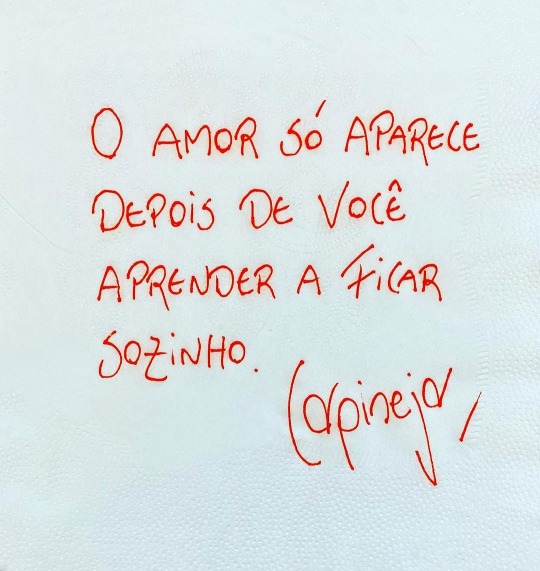 O AMOR SÓ APARECE
DEPOIS DE VOCÊ
APRENDER A FICAR
SOZINHO.
Carpinejar